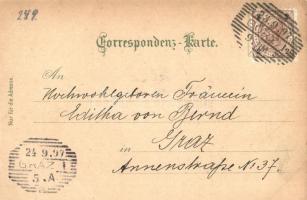 249
Correspondenz-Karte.
An
Hochwohlgeboren Fräulein
Editha von Bernd
in Graz
Annenstraße No 37.
Nur für die Adresse.
24.9.97
GRAZ 1
5.A
24.9.97